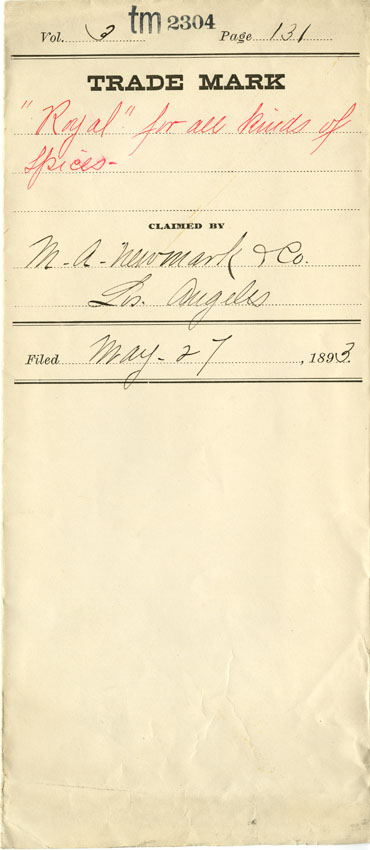 Vol. 3 tm 2304 Page 131
TRADE MARK
"Royal" for all kinds of
spices-
CLAIMED BY
M. A. Newmark & Co.
Los. Angeles
Filed May. 27, 1893.